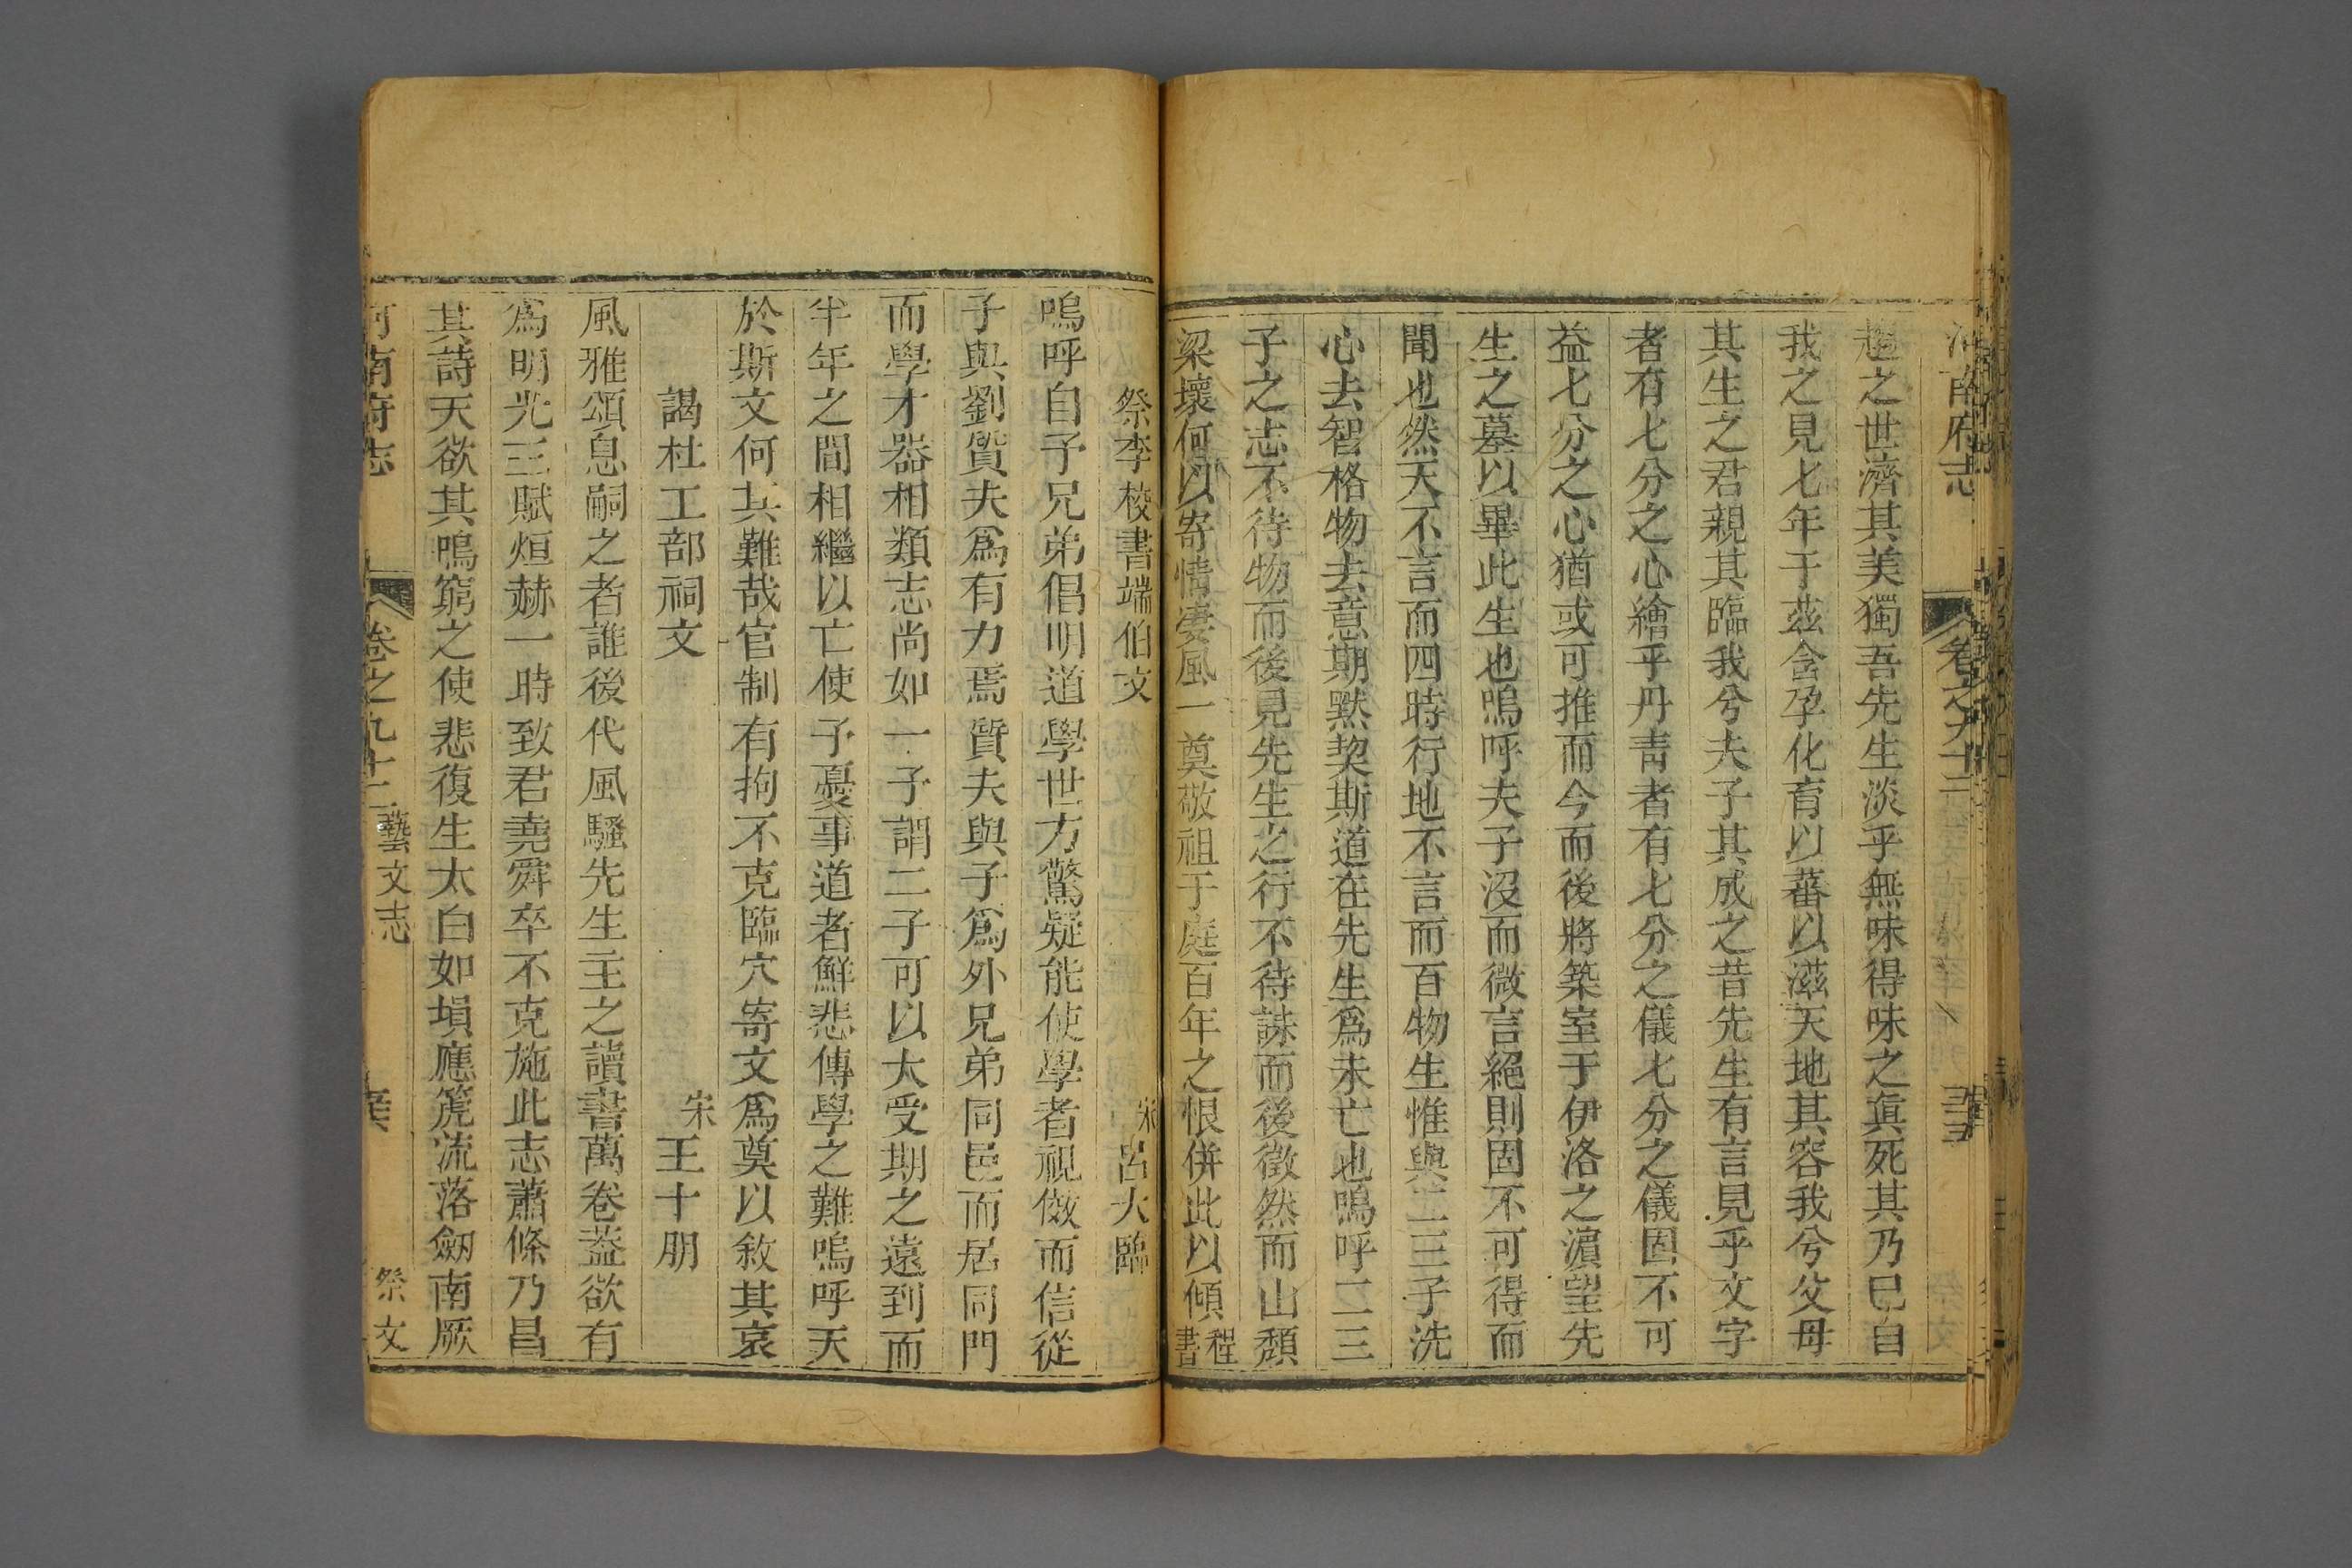 河南府志 卷之九十二
趨之世濟其美獨吾先生淡乎無味得味之眞死其乃已自
我之見七年于茲含孕化育以蕃以滋天地其容我兮父母
其生之君親其臨我兮夫子其成之昔先生有言見乎文字
者有七分之心繪乎丹青者有七分之儀七分之儀固不可
益七分之心猶或可推而今而後將築室于伊洛之濵望先
生之墓以畢此生也嗚呼夫子沒而微言絕則固不可得而
聞也然天不言而四時行地不言而百物生惟與二三子洗
心去智格物去意期黙契斯道在先生爲未亡也嗚呼二三
子之志不待物而後見先生之行不待誄而後徵然而山頽
梁壞何以寄情凄風一奠敬祖于庭百年之恨併此以傾 程書
祭李校書端伯文 宋 呂大臨
嗚呼自予兄弟倡明道學世方驚疑能使學者視倣而信從
子與劉質夫爲有力焉質夫與子爲外兄弟同邑而居同門
而學才器相類志尚如一予謂二子可以大受期之遠到而
半年之間相繼以亡使予憂事道者鮮悲傳學之難嗚呼天
於斯文何其難哉官制有拘不克臨穴寄文爲奠以敘其哀
謁杜工部祠文 宋 王十朋
風雅頌息嗣之者誰後代風騷先生主之讀書萬卷葢欲有
爲明光三賦烜赫一時致君堯舜卒不克施此志蕭條乃昌
其詩天欲其鳴窮之使悲復生太白如塤應箎流落劒南厥
河南府志 卷之九十二 藝文志 祭文